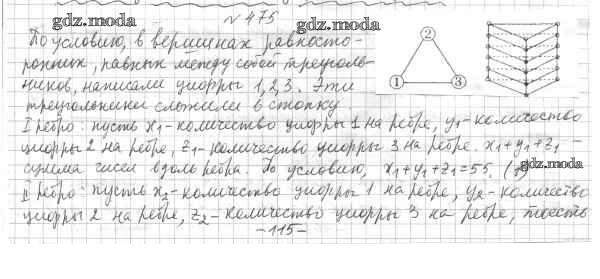 №475
gdz.moda
gdz.moda
По условию, в вершинах равносто-
ронних, равных между собой треуголь-
ников, написали цифры 1, 2, 3. Эти
треугольники сложили в стопку.
2
1
3
I ребро: пусть x1-количество цифры 1 на ребре, y1-количество
цифры 2 на ребре, z1-количество цифры 3 на ребре. x1+y1+z1 -
сумма чисел вдоль ребра. По условию, x1+y1+z1=55. (1)
gdz.moda
II ребро: пусть x2-количество цифры 1 на ребре, y2-количество
цифры 2 на ребре, z2-количество цифры 3 на ребре, тоесть
-115-